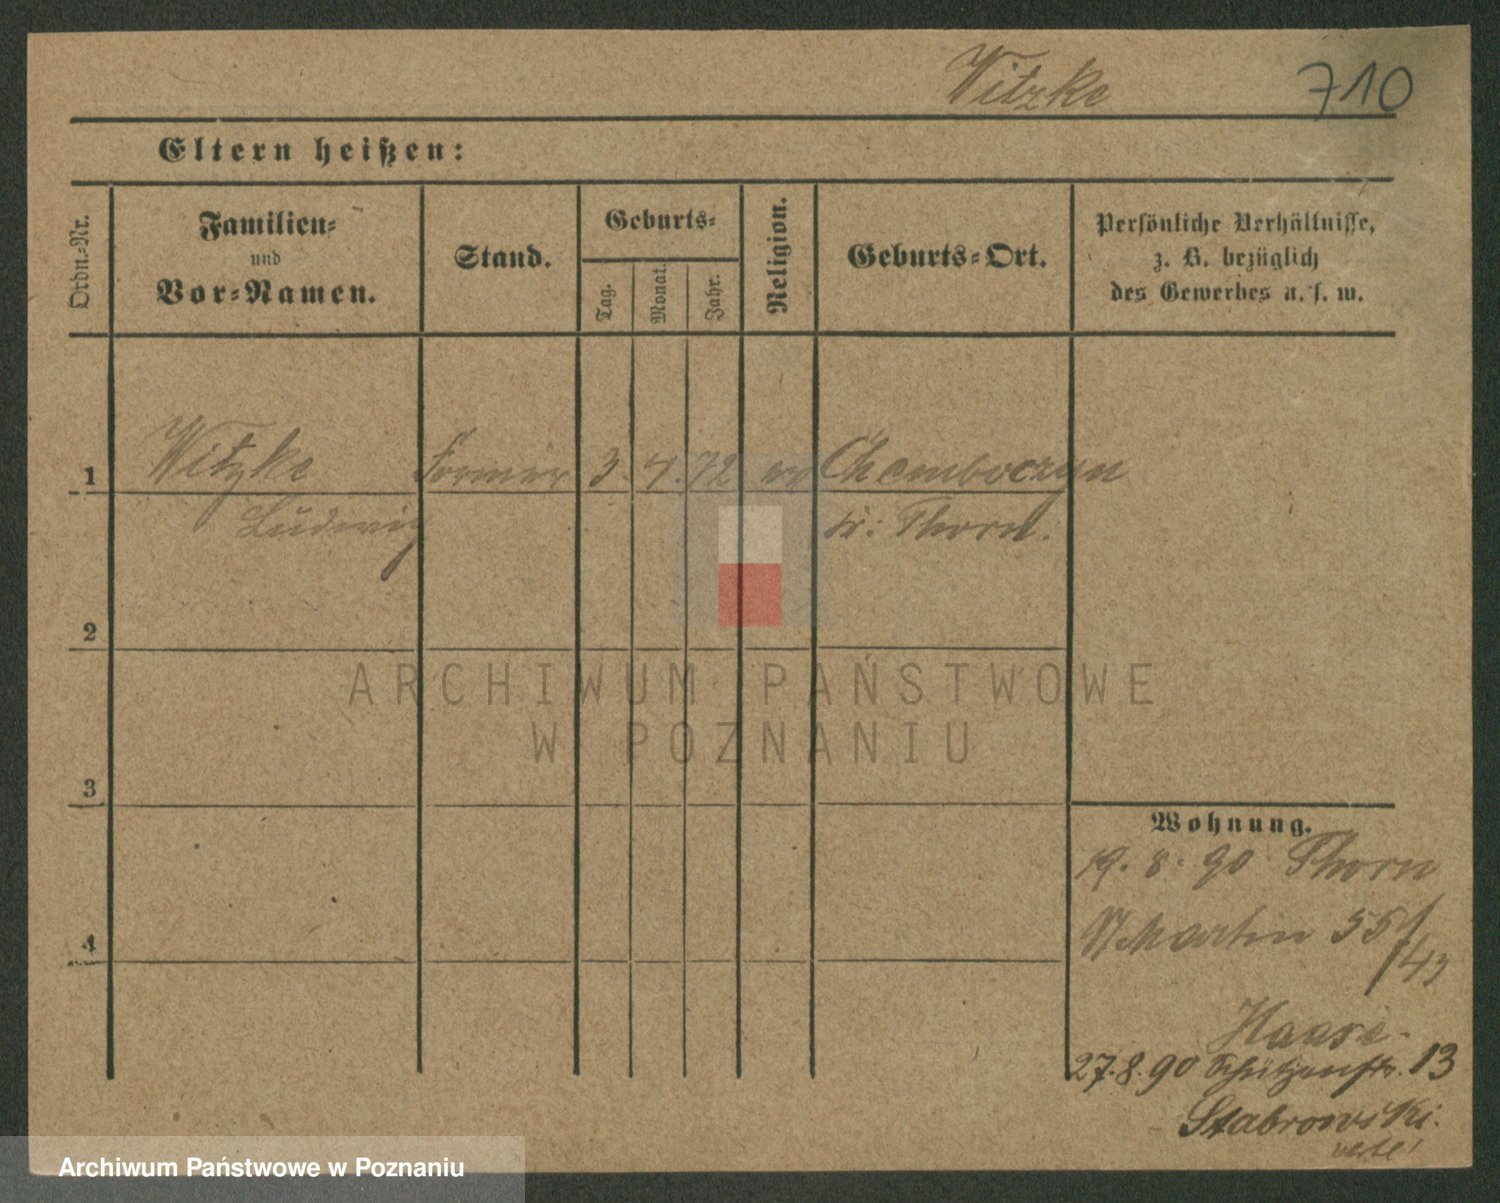 Witzke 710
Eltern heißen:
Ordn.-Nr.
Familien-
und
Vor-Namen.
Stand.
Geburts-
Tag.
Monat.
Jahr.
Religion.
Geburts-Ort.
Persönliche Verhältnisse,
z. B. bezüglich
des Gewerbes u. s. w.
1 Witzke Former 3. 4. 72
Ludwig Kr: Thorn.
2
3
4
Wohnung.
19. 8. 90 Thorn
St Martin 55/43
Haase
27. 8. 90 Schützenstr. 13
Stabrowski.
verte!
ARCHIWUM PAŃSTWOWE
W POZNANIU
Archiwum Państwowe w Poznaniu